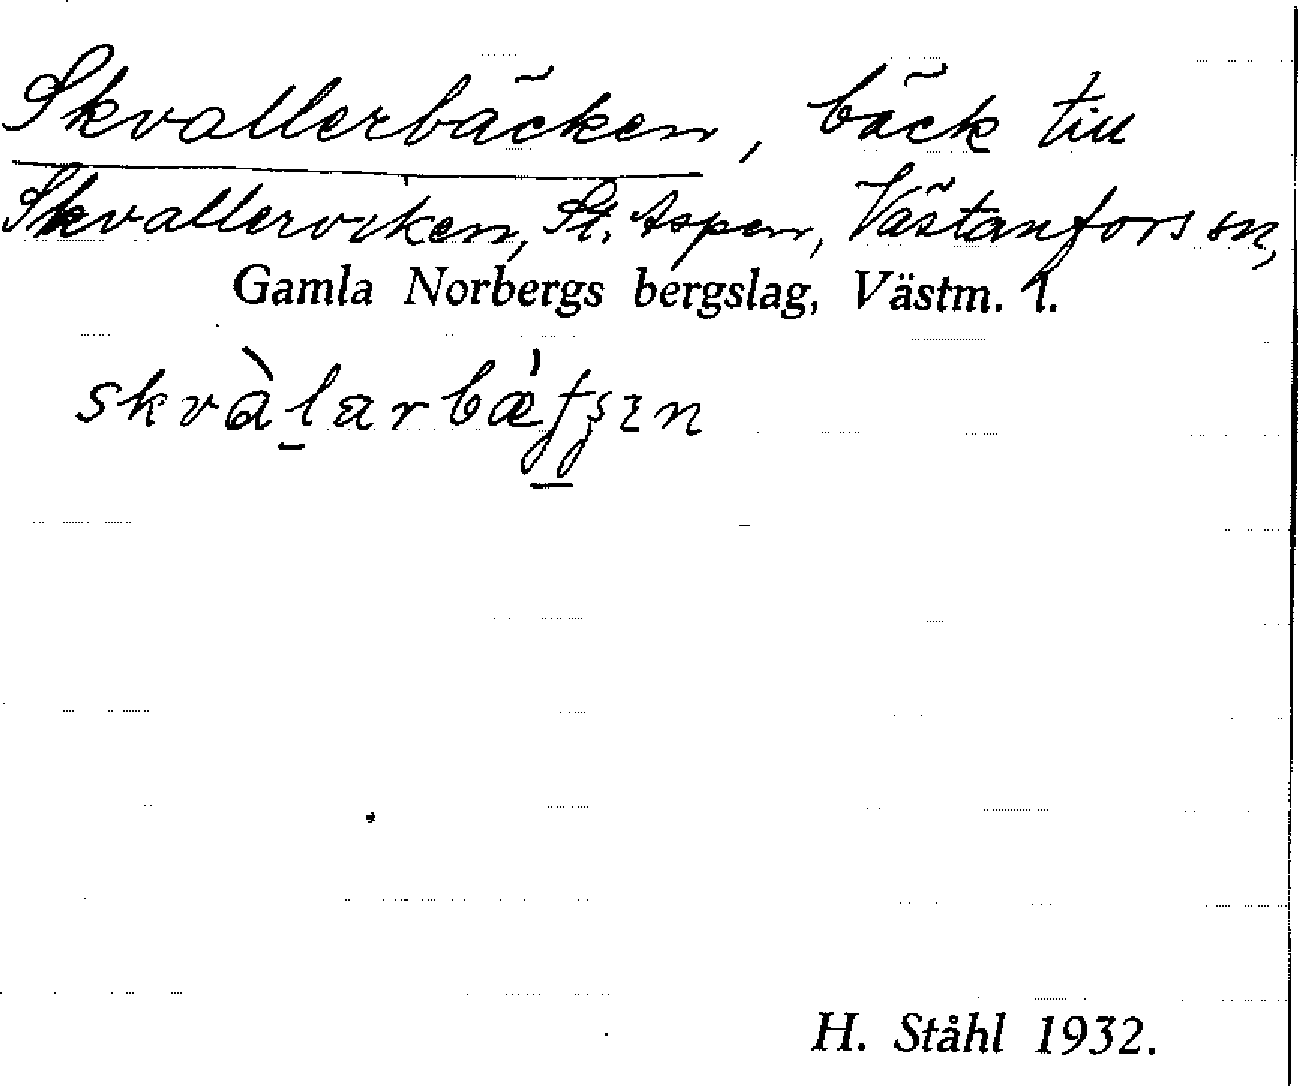 Skvallerbäcken, bäck till
Skvallerviken, St. Aspen, Västanfors sn,
Gamla Norbergs bergslag, Västm. l.
H. Ståhl 1932.